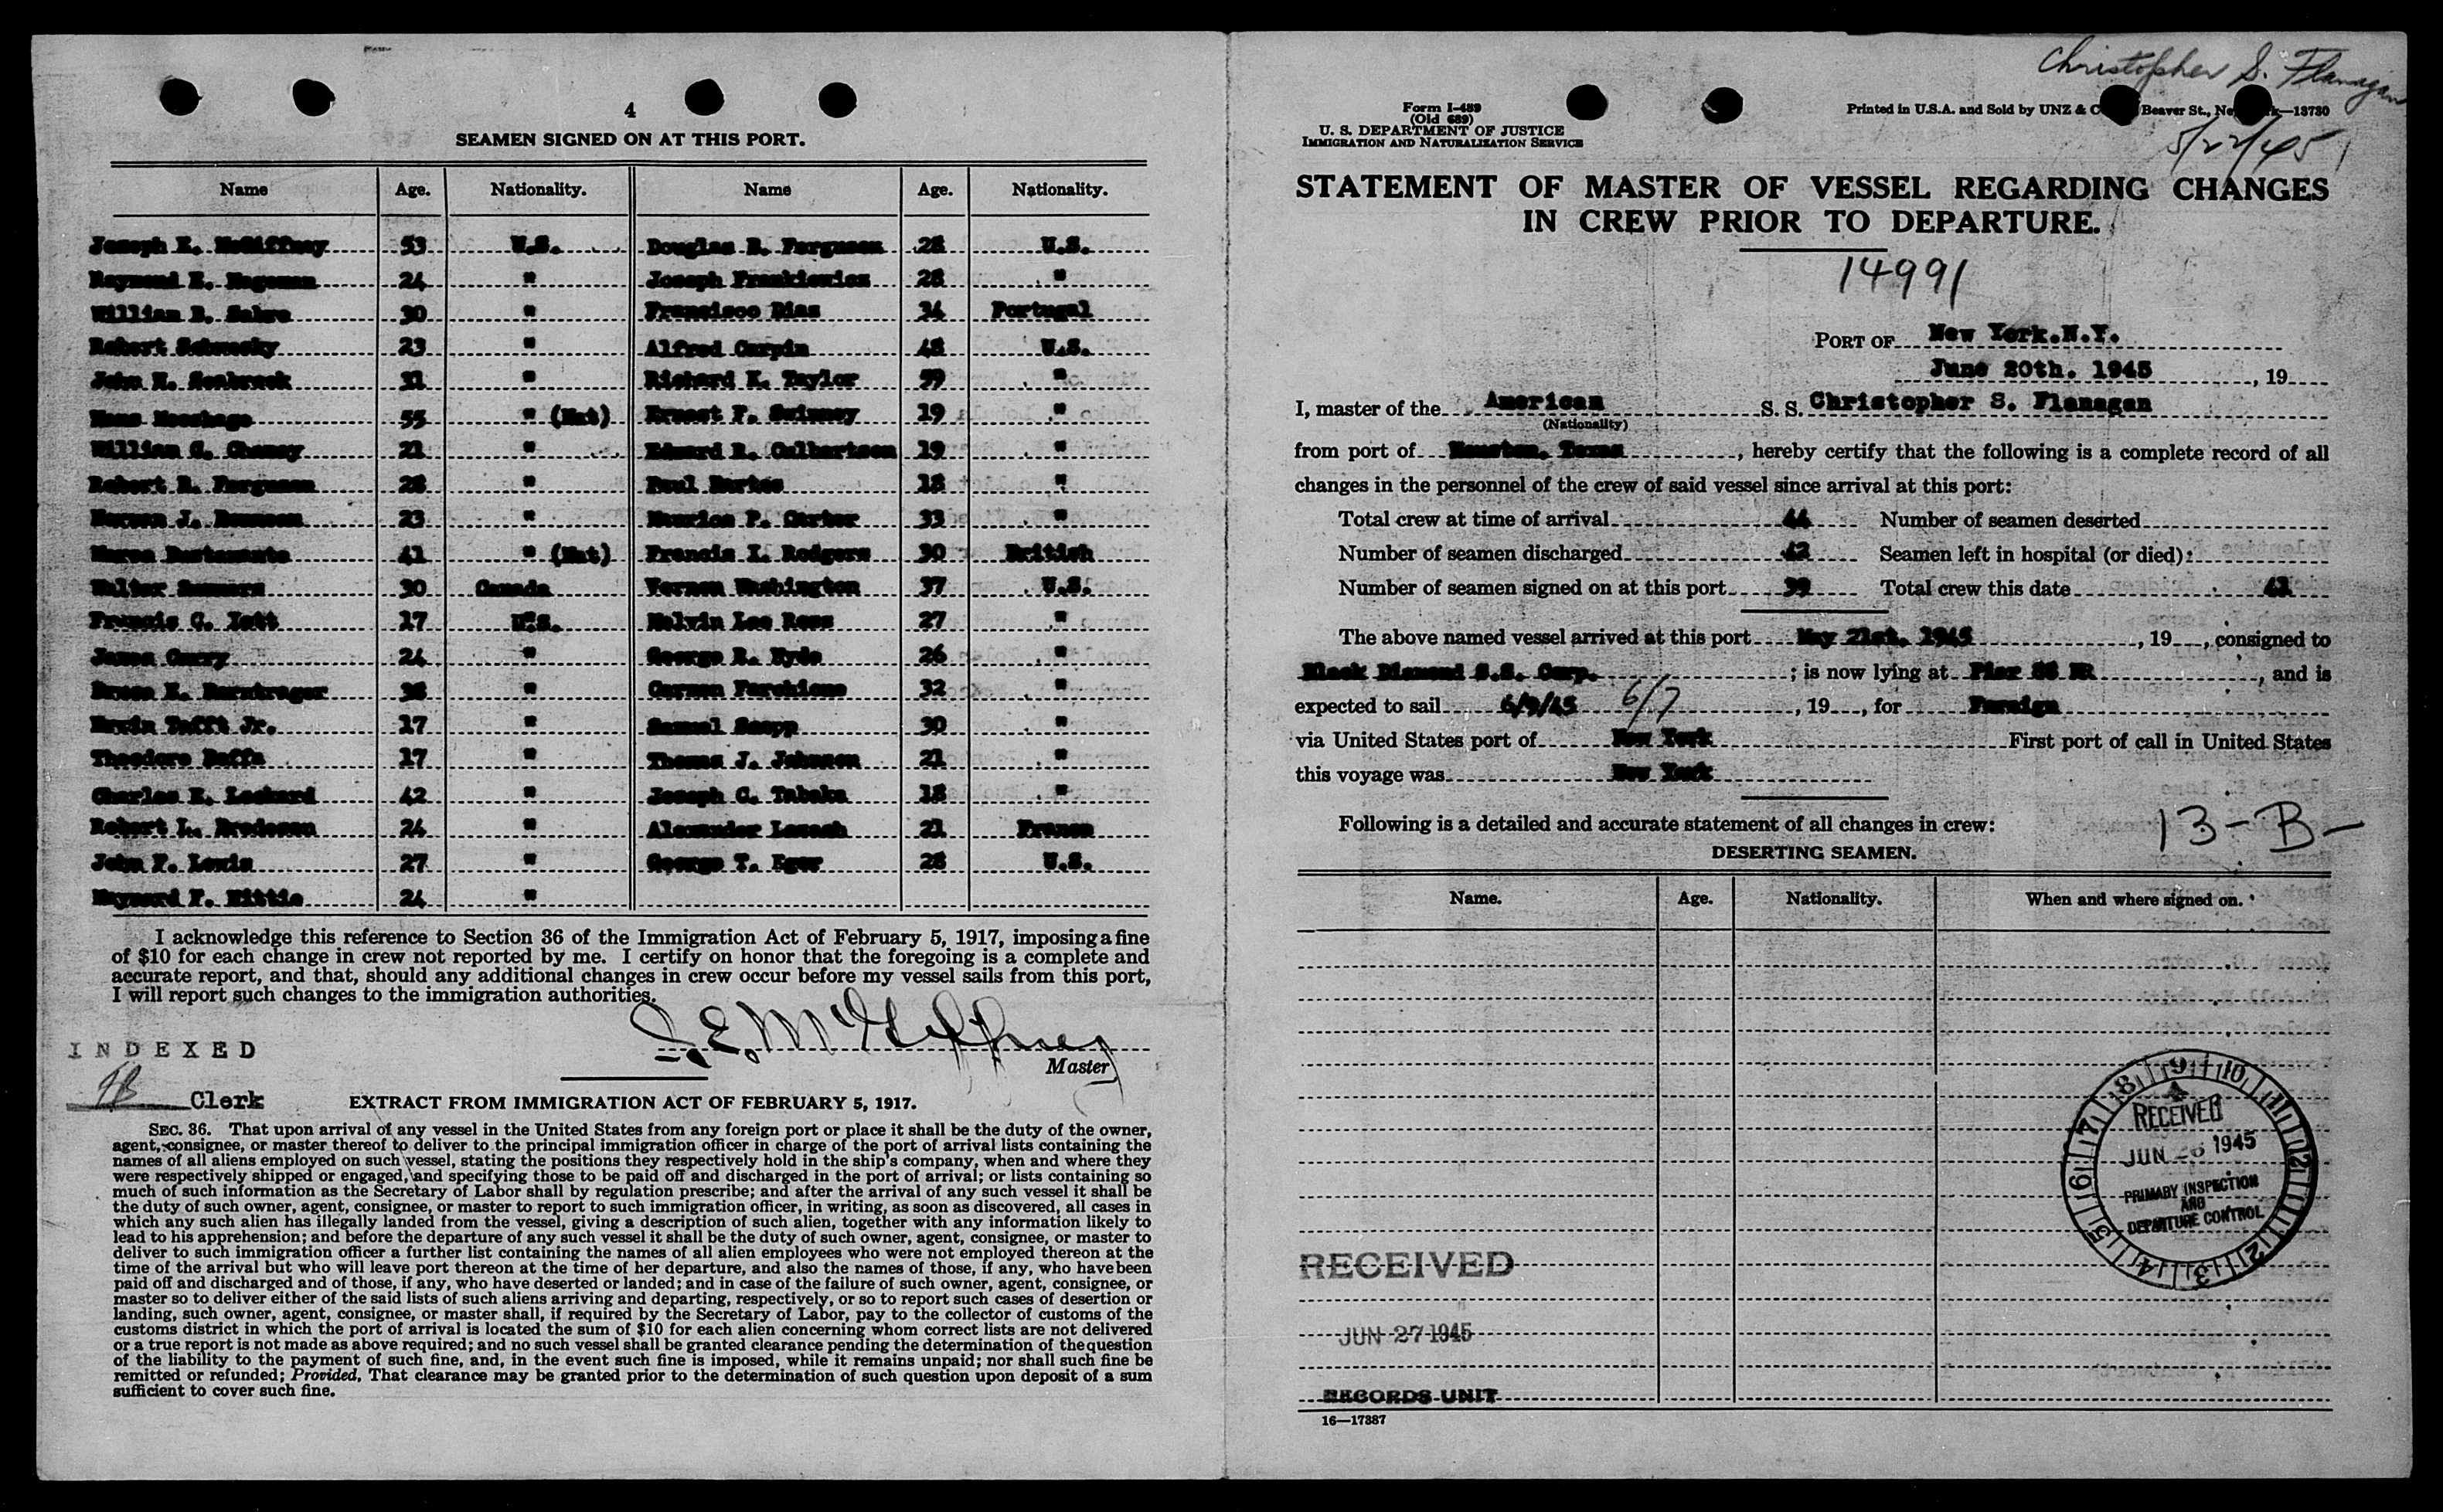 4
SEAMEN SIGNED ON AT THIS PORT.
Name Age. Nationality. Name Age. Nationality.
Joseph E. McGiffney 53 U.S. Douglas B. Ferguson 28 U.S.
Raymond E. Hageman 24 " Joseph Frankiewicz 28 "
William B. 30 " Francisco Dias 34 Portugal
Robert 23 " Alfred 48 U.S.
John H. Seabrook 31 " Richard K. Taylor 59 "
55 " (Nat) Ernest F. 19 "
William G. Chaney 21 " Edward R. Culbertson 19 "
Robert R. Ferguson 28 " Paul 18 "
J. 23 " Maurice P. Carter 33 "
41 " (Nat) Francis I. Rodgers 30 British
Walter 30 Canada Vernon Washington 37 U.S.
Francis C. 17 U.S. Melvin Lee Ross 27 "
James Curry 24 " George R. Hyde 26 "
38 " Carmen 32 "
Tafft Jr. 17 " Samuel 30 "
Theodore 17 " Thomas J. Johnson 21 "
Charles E. Lockard 42 " Joseph C. Tabaka 18 "
Robert L. 24 " Alexander 21 France
John F. Lewis 27 " George T. Eger 28 U.S.
Maynard F. 24 "
I acknowledge this reference to Section 36 of the Immigration Act of February 5, 1917, imposing a fine
of $10 for each change in crew not reported by me. I certify on honor that the foregoing is a complete and
accurate report, and that, should any additional changes in crew occur before my vessel sails from this port,
I will report such changes to the immigration authorities.
J. E. McGiffney
Master
INDEXED
Clerk
EXTRACT FROM IMMIGRATION ACT OF FEBRUARY 5, 1917.
SEC. 36. That upon arrival of any vessel in the United States from any foreign port or place it shall be the duty of the owner,
agent, consignee, or master thereof to deliver to the principal immigration officer in charge of the port of arrival lists containing the
names of all aliens employed on such vessel, stating the positions they respectively hold in the ship's company, when and where they
were respectively shipped or engaged, and specifying those to be paid off and discharged in the port of arrival; or lists containing so
much of such information as the Secretary of Labor shall by regulation prescribe; and after the arrival of any such vessel it shall be
the duty of such owner, agent, consignee, or master to report to such immigration officer, in writing, as soon as discovered, all cases in
which any such alien has illegally landed from the vessel, giving a description of such alien, together with any information likely to
lead to his apprehension; and before the departure of any such vessel it shall be the duty of such owner, agent, consignee, or master to
deliver to such immigration officer a further list containing the names of all alien employees who were not employed thereon at the
time of the arrival but who will leave port thereon at the time of her departure, and also the names of those, if any, who have been
paid off and discharged and of those, if any, who have deserted or landed; and in case of the failure of such owner, agent, consignee, or
master so to deliver either of the said lists of such aliens arriving and departing, respectively, or so to report such cases of desertion or
landing, such owner, agent, consignee, or master shall, if required by the Secretary of Labor, pay to the collector of customs of the
customs district in which the port of arrival is located the sum of $10 for each alien concerning whom correct lists are not delivered
or a true report is not made as above required; and no such vessel shall be granted clearance pending the determination of the question
of the liability to the payment of such fine, and, in the event such fine is imposed, while it remains unpaid; nor shall such fine be
remitted or refunded; Provided, That clearance may be granted prior to the determination of such question upon deposit of a sum
sufficient to cover such fine.
Christopher S. Flanagan
5/22/45
Form I-489
(Old 689)
U. S. DEPARTMENT OF JUSTICE
IMMIGRATION AND NATURALIZATION SERVICE
Printed in U.S.A. and Sold by UNZ & C Beaver St., Ne rk—13730
STATEMENT OF MASTER OF VESSEL REGARDING CHANGES
IN CREW PRIOR TO DEPARTURE.
14991
PORT OF New York.N.Y.
June 20th. 1945, 19
I, master of the American S. S. Christopher S. Flanagan
(Nationality)
from port of Houston, Texas, hereby certify that the following is a complete record of all
changes in the personnel of the crew of said vessel since arrival at this port:
Total crew at time of arrival 44 Number of seamen deserted
Number of seamen discharged 42 Seamen left in hospital (or died):
Number of seamen signed on at this port 39 Total crew this date 41
The above named vessel arrived at this port May 21st, 1945, 19, consigned to
Black Diamond S.S. Corp.; is now lying at Pier NR, and is
expected to sail 6/9/45 6/7, 19, for Foreign
via United States port of New York First port of call in United States
this voyage was New York
Following is a detailed and accurate statement of all changes in crew:
13-B-
DESERTING SEAMEN.
Name. Age. Nationality. When and where signed on.
7 8 9 10 11 12 1 2 3 4 5 6
RECEIVED
JUN 26 1945
PRIMARY INSPECTION
AND
DEPARTURE CONTROL
RECEIVED
JUN 27 1945
RECORDS UNIT
16—17387